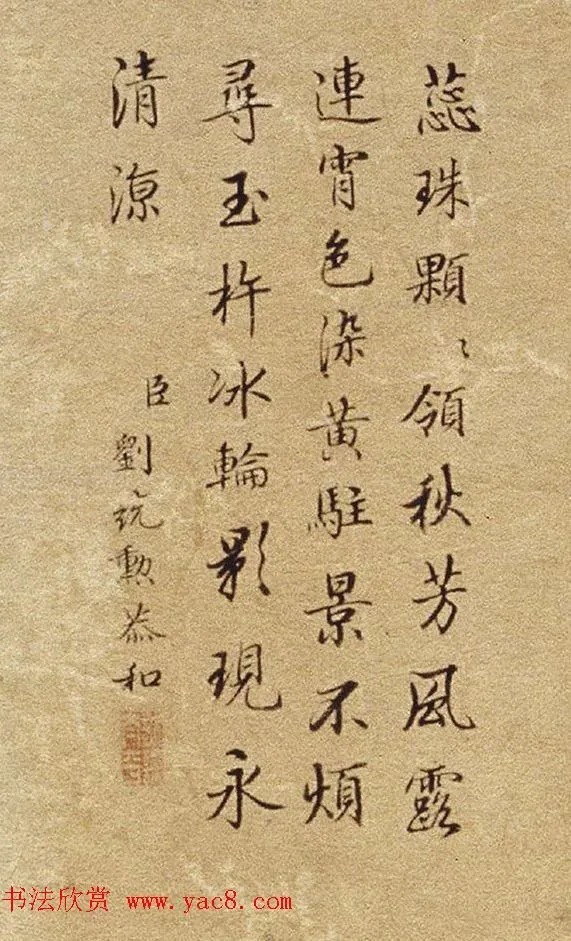 蕊珠顆〻領秋芳風露
連宵色染黄駐景不煩
尋玉杵冰輪影現永
清涼
臣劉統勳恭和
书法欣赏 www.yac8.com